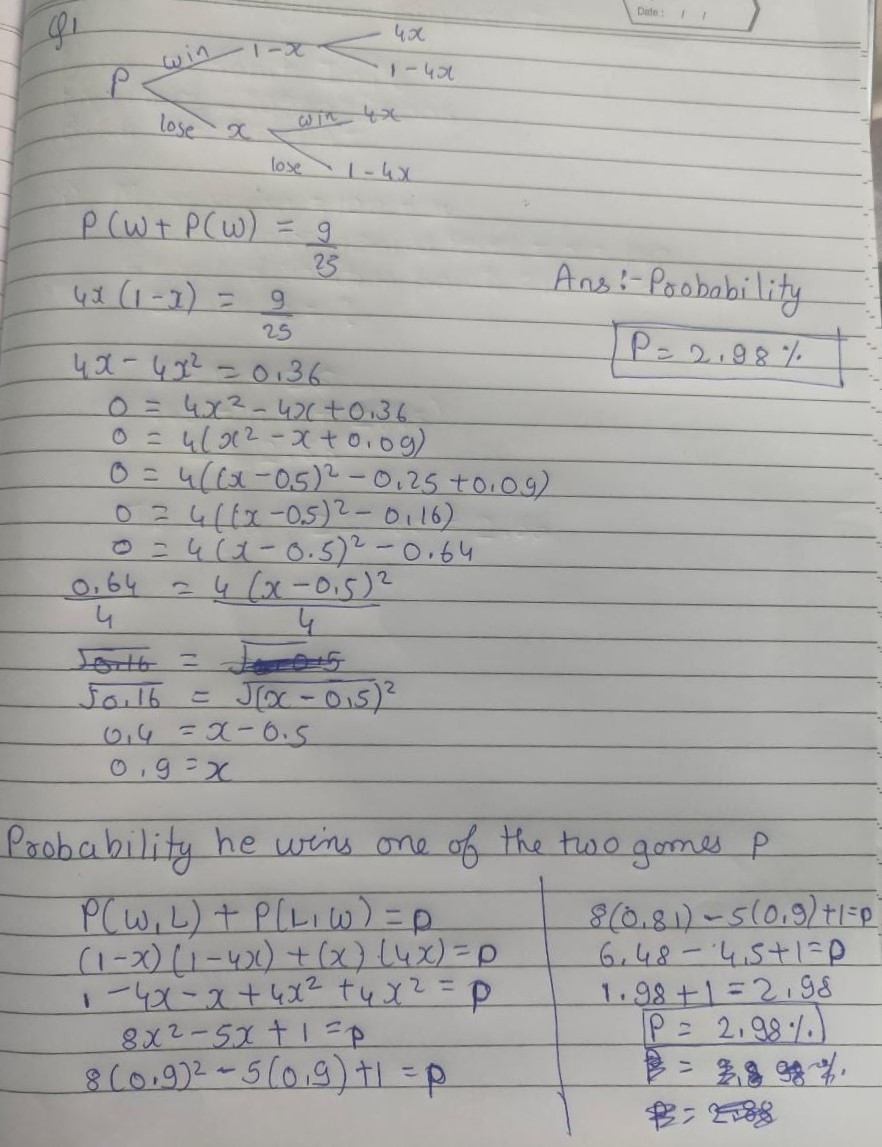 Date: / /
Q1
4x
win 1-x
1-4x
P
win 4x
lose x
lose 1-4x
P(W+P(W) = 9/25
4x(1-x) = 9/25
4x-4x² = 0.36
0 = 4x²-4x+0.36
0 = 4(x²-x+0.09)
0 = 4((x-0.5)²-0.25+0.09)
0 = 4((x-0.5)²-0.16)
0 = 4(x-0.5)²-0.64
0.64/4 = 4(x-0.5)²/4
√0.16 =
√0.16 = √(x-0.5)²
0.4 = x-0.5
0.9=x
Ans:-Probability
P= 2.98%
Probability he wins one of the two games P
P(W,L)+P(L,W)=p
(1-x)(1-4x)+(x)(4x)=p
1-4x-x+4x²+4x²=p
8x²-5x+1=p
8(0.9)²-5(0.9)+1=p
8(0.81)-5(0.9)+1=p
6.48-4.5+1=p
1.98+1=2.98
P= 2.98%